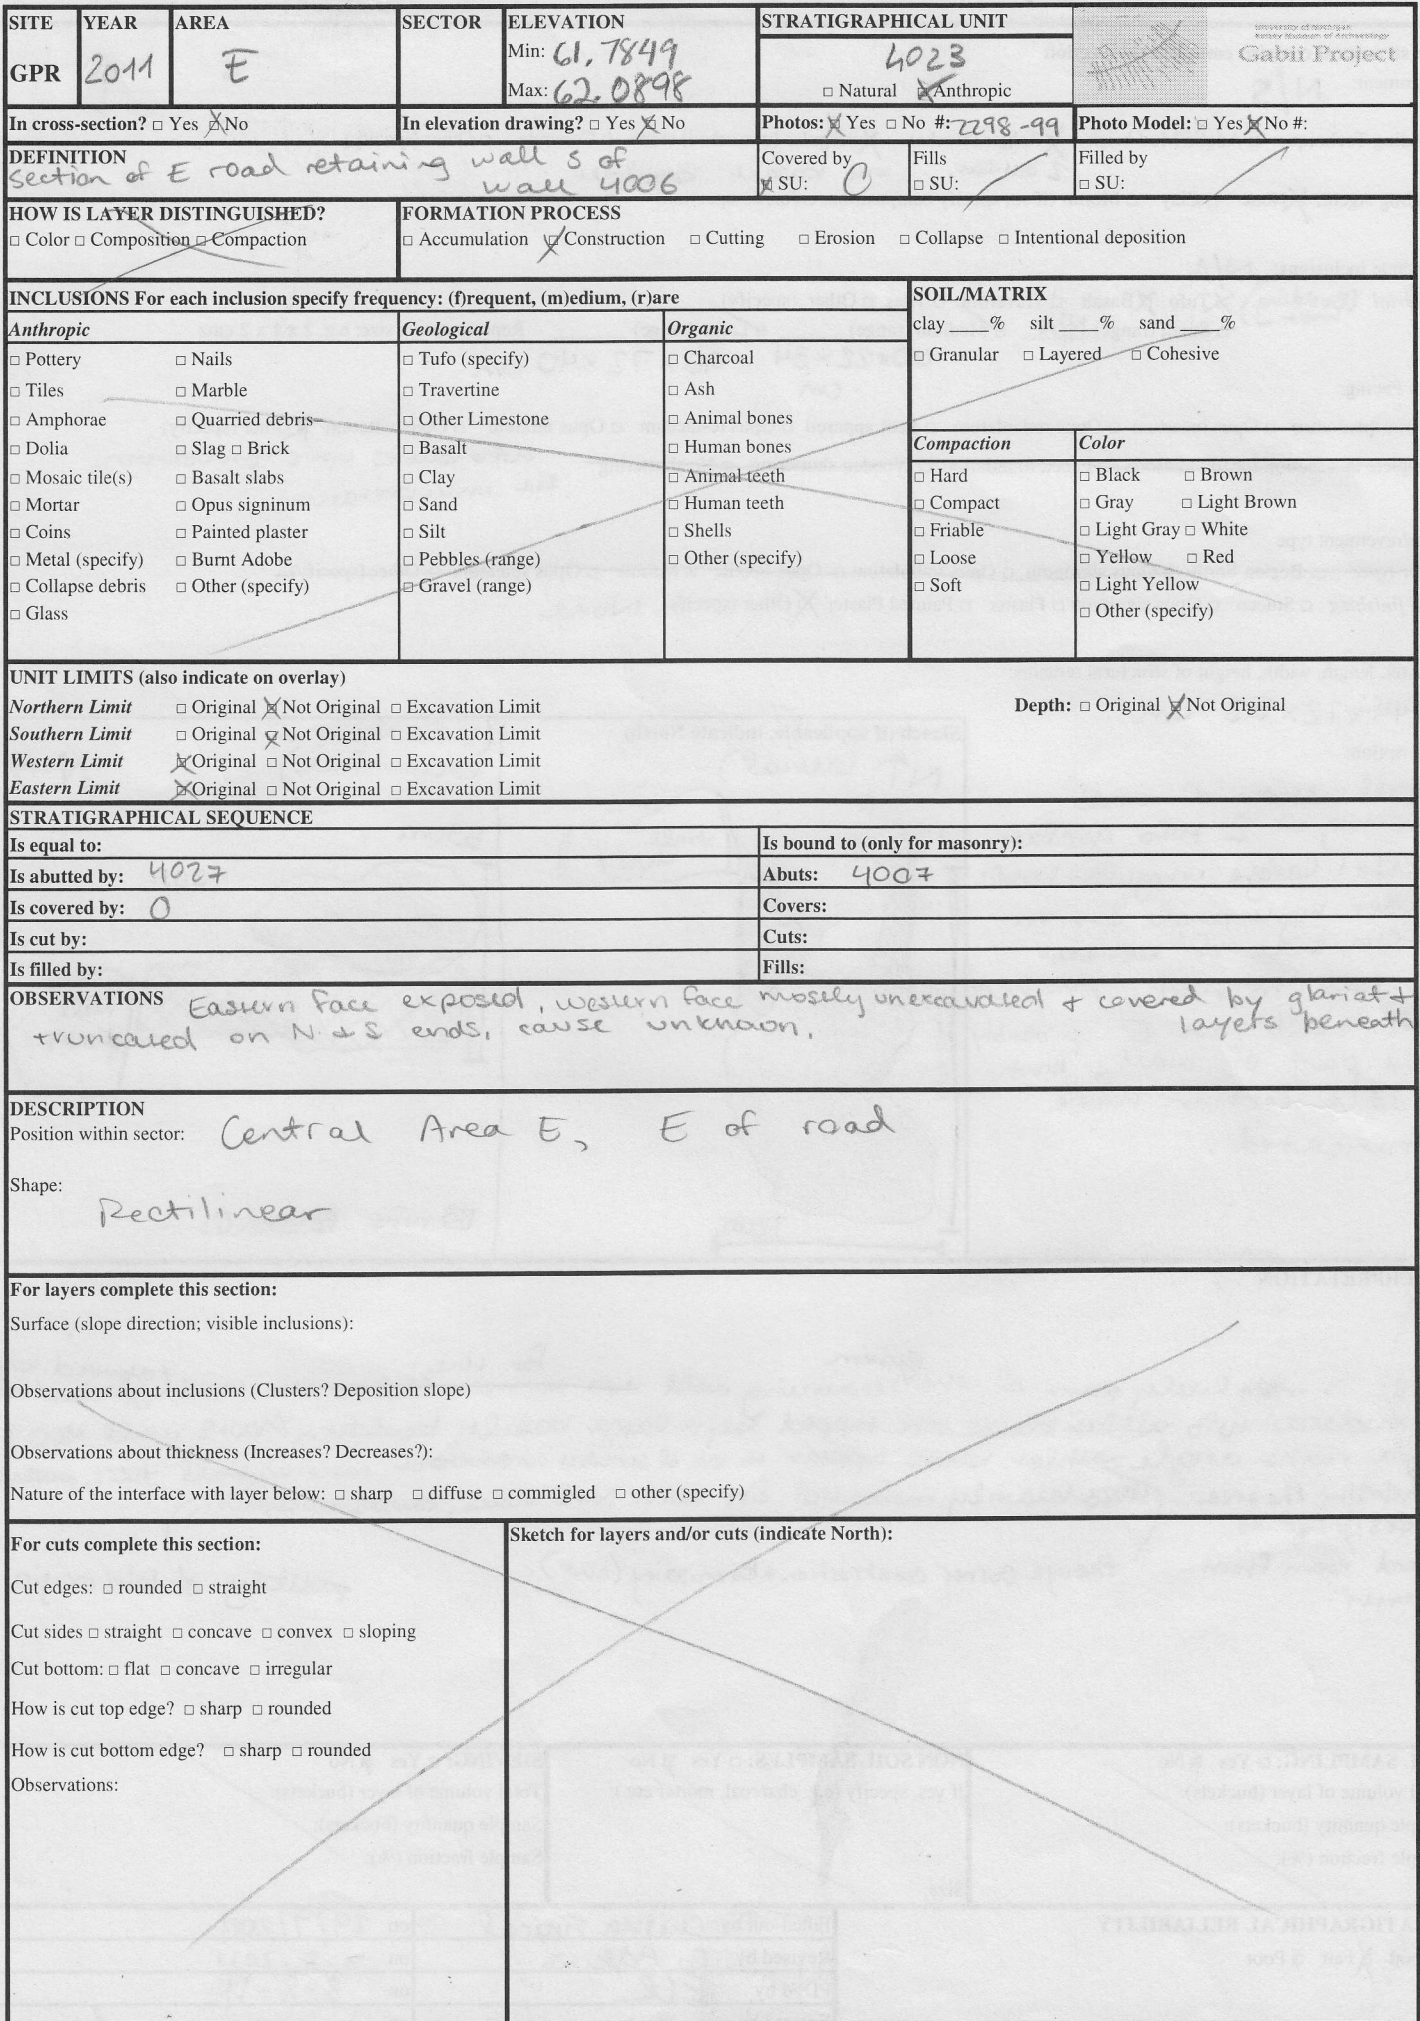 SITE YEAR AREA SECTOR ELEVATION STRATIGRAPHICAL UNIT
GPR 2011 E Min: 61.7849 4023 Gabii Project
Max: 62.0898 □ Natural ☒ Anthropic
In cross-section? □ Yes ☒ No In elevation drawing? □ Yes ☒ No Photos: ☒ Yes □ No #: 2298-99 Photo Model: □ Yes ☒ No #:
DEFINITION
Section of E road retaining wall S of
wall 4006
Covered by
☒ SU: 0
Fills
□ SU: /
Filled by
□ SU: /
HOW IS LAYER DISTINGUISHED?
□ Color □ Composition □ Compaction
FORMATION PROCESS
□ Accumulation ☒ Construction □ Cutting □ Erosion □ Collapse □ Intentional deposition
INCLUSIONS For each inclusion specify frequency: (f)requent, (m)edium, (r)are
Anthropic
□ Pottery □ Nails
□ Tiles □ Marble
□ Amphorae □ Quarried debris
□ Dolia □ Slag □ Brick
□ Mosaic tile(s) □ Basalt slabs
□ Mortar □ Opus signinum
□ Coins □ Painted plaster
□ Metal (specify) □ Burnt Adobe
□ Collapse debris □ Other (specify)
□ Glass
Geological
□ Tufo (specify)
□ Travertine
□ Other Limestone
□ Basalt
□ Clay
□ Sand
□ Silt
□ Pebbles (range)
□ Gravel (range)
Organic
□ Charcoal
□ Ash
□ Animal bones
□ Human bones
□ Animal teeth
□ Human teeth
□ Shells
□ Other (specify)
SOIL/MATRIX
clay ____% silt ____% sand ____%
□ Granular □ Layered □ Cohesive
Compaction
□ Hard
□ Compact
□ Friable
□ Loose
□ Soft
Color
□ Black □ Brown
□ Gray □ Light Brown
□ Light Gray □ White
□ Yellow □ Red
□ Light Yellow
□ Other (specify)
UNIT LIMITS (also indicate on overlay)
Northern Limit □ Original ☒ Not Original □ Excavation Limit Depth: □ Original ☒ Not Original
Southern Limit □ Original ☒ Not Original □ Excavation Limit
Western Limit ☒ Original □ Not Original □ Excavation Limit
Eastern Limit ☒ Original □ Not Original □ Excavation Limit
STRATIGRAPHICAL SEQUENCE
Is equal to: Is bound to (only for masonry):
Is abutted by: 4027 Abuts: 4007
Is covered by: 0 Covers:
Is cut by: Cuts:
Is filled by: Fills:
OBSERVATIONS Eastern face exposed, western face mostly unexcavated + covered by glariat +
layers beneath
truncated on N + S ends, cause unknown.
DESCRIPTION
Position within sector: Central Area E, E of road
Shape:
Rectilinear
For layers complete this section:
Surface (slope direction; visible inclusions):
Observations about inclusions (Clusters? Deposition slope)
Observations about thickness (Increases? Decreases?):
Nature of the interface with layer below: □ sharp □ diffuse □ commigled □ other (specify)
For cuts complete this section:
Cut edges: □ rounded □ straight
Cut sides □ straight □ concave □ convex □ sloping
Cut bottom: □ flat □ concave □ irregular
How is cut top edge? □ sharp □ rounded
How is cut bottom edge? □ sharp □ rounded
Observations:
Sketch for layers and/or cuts (indicate North):